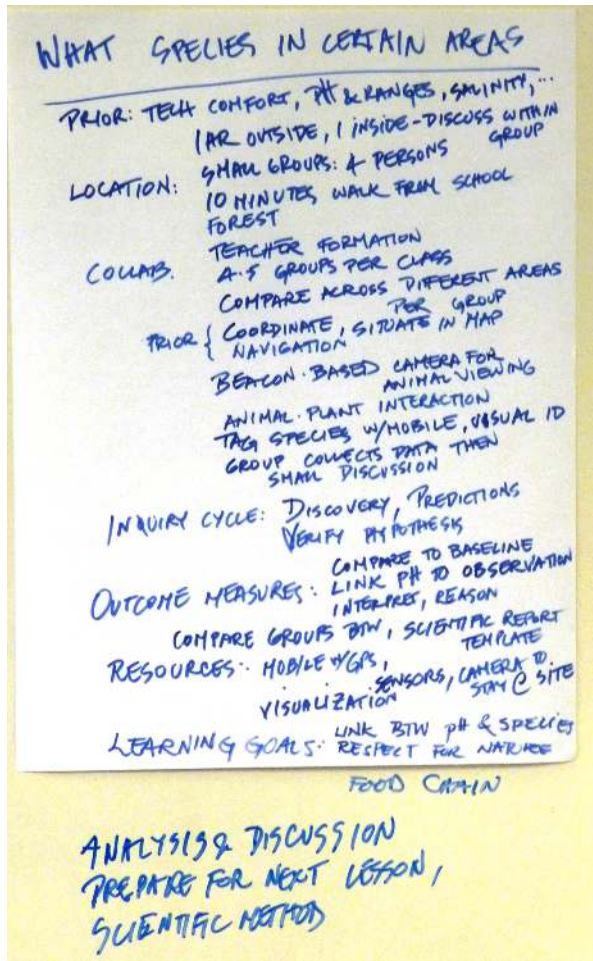 WHAT SPECIES IN CERTAIN AREAS
PRIOR: TECH COMFORT, PH & RANGES, SALINITY,...
1 AR OUTSIDE, 1 INSIDE - DISCUSS WITHIN
GROUP
LOCATION: SMALL GROUPS: 4 PERSONS
10 MINUTES WALK FROM SCHOOL
FOREST
TEACHER FORMATION
COLLAB. 4-5 GROUPS PER CLASS
COMPARE ACROSS DIFFERENT AREAS
PER GROUP
PRIOR { COORDINATE, SITUATE IN MAP
NAVIGATION
BEACON-BASED CAMERA FOR
ANIMAL VIEWING
ANIMAL-PLANT INTERACTION
TAG SPECIES W/MOBILE, VISUAL ID
GROUP COLLECTS DATA THEN
SMALL DISCUSSION
INQUIRY CYCLE: DISCOVERY, PREDICTIONS
VERIFY HYPOTHESIS
COMPARE TO BASELINE
OUTCOME MEASURES: LINK PH TO OBSERVATION
INTERPRET, REASON
COMPARE GROUPS BTW, SCIENTIFIC REPORT
TEMPLATE
RESOURCES: MOBILE W/GPS,
SENSORS, CAMERA TO
VISUALIZATION STAY @ SITE
LEARNING GOALS: LINK BTW pH & SPECIES
RESPECT FOR NATURE
FOOD CHAIN
ANALYSIS & DISCUSSION
PREPARE FOR NEXT LESSON,
SCIENTIFIC METHOD